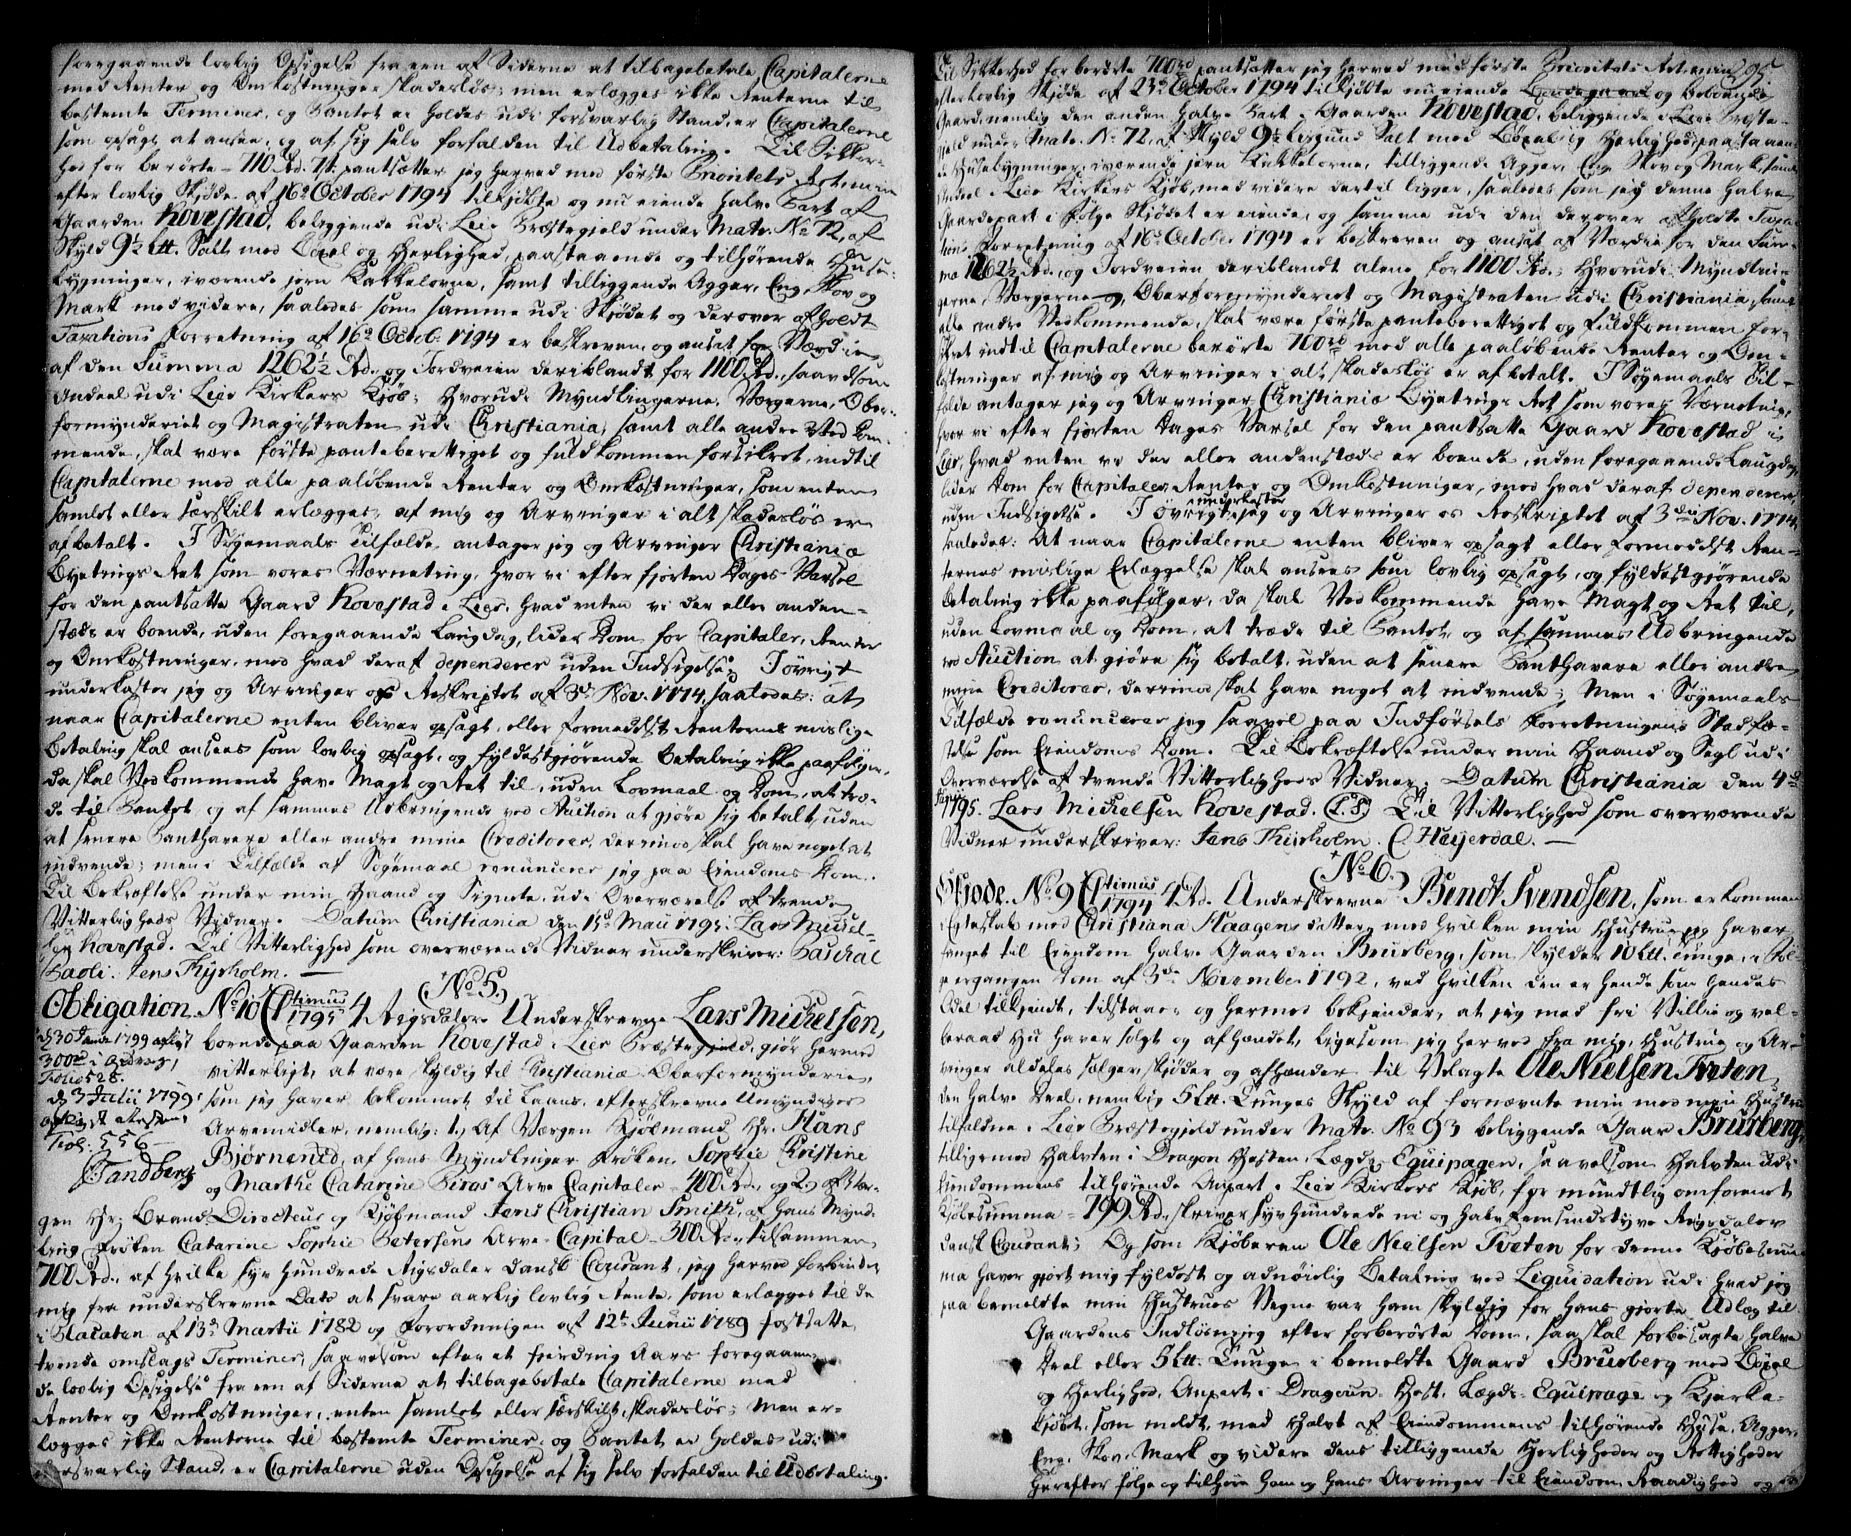 foregaaende lovlig Opsigelse fra een af Siderne at tilbagebetale Capitalerne
med Renter og Omkostninger skadesløs; men erlægges ikke Renterne til
bestemte Terminer, og Pantet ei holdes udi forsvarlig Stand, er Capitalerne
som opsagt at ansee, og af sig selv forfalden til Udbetaling. Til Sikker-
hed for berørte 710 Rd. pantsætter jeg herved med første Prioritets Ret min
efter lovlig Skjøde af 16de October 1794 tilkjøbte og nu eiende halve Part af
Gaarden Kovestad, beliggende udi Lier Præstegjeld under Matr. No 72, af
Skyld 9½ Ltt. Salt med Bøxel og Herlighed, paastaaende og tilhørende Huse-
bygninger, iværende jern Kakkelovne, samt tilliggende Agger, Eng, Skov og
Mark med videre, saaledes som samme udi Skjødet og derover afholdt
Taxations Forretning af 16de Octob. 1794 er beskreven, og ansat for Værdie
af den Summa 1262½ Rd. og Jordveien deriblandt for 1100 Rd., saavelsom
Andeel udi Lier Kirkes Kjøb; Hvorudi Myndlingerne, Værgerne, Ober-
formynderiet og Magistraten udi Christiania, samt alle andre Vedkom-
mende, skal være første panteberettiget og fuldkommen forsikret, indtil
Capitalerne med alle paaløbende Renter og Omkostninger, som enten
samlet eller særskilt erlægges, af mig og Arvinger i alt skadesløs er
afbetalt. I Søgemaals Tilfælde antager jeg og Arvinger Christiania
Byetings Ret som vores Værneting, hvor vi efter fjorten Dages Varsel
for den pantsatte Gaard Kovestad i Lier, hvad enten vi der eller anden-
stæds er boende, uden foregaaende Laugdag, lider Dom for Capitaler, Renter
og Omkostninger, med hvad deraf dependerer uden Indsigelse. I øvrigt
underkaster jeg og Arvinger os Reskriptet af 3de Nov. 1774, saaledes: at
naar Capitalerne enten bliver opsagt, eller formedelst Renternes mislige
Betaling skal ansees som lovlig opsagt, og fyldestgjørende Betaling ikke paafølger,
da skal Vedkommende have Magt og Ret til, uden Lovmaal og Dom, at træ-
de til Pantet og af sammes Udbringende ved Auction at gjøre sig betalt, uden
at senere Panthavere eller andre mine Creditorer, derimod skal have noget at
indvende; men i Tilfælde af Søgemaal renuncierer jeg paa Eiendoms Dom.
Til Bekræftelse under min Haand og Signete, udi Overværelse af tvende
Vitterligheds Vidner. Datum Christiania den 15d Maii 1795. Lars Michel-
sen Kovestad. Til Vitterlighed som overværende Vidner underskriver: Paschal
Paoli. Jens Thysholm. —
(No 5.)
Obligation. No 10 Ctimus 1795 4 Rigsdaler. Underskrevne Lars Michelsen,
boende paa Gaarden Kovestad i Lier Præstegjeld, gjør hermed
vitterligt, at være skyldig til Christiania Oberformynderie,
som jeg haver bekommet til Laans, efterskrevne Umyndiges
Arvemidler, nemlig: 1, Af Værgen Kjøbmand Hr. Hans
Bjørnened, af hans Myndlinger Frøken Sophie Christine
og Marthe Catarine Arve Capitaler 400 Rd., og 2, af Vær-
d 30 Janu 1799 aflyst
300 Rd
Folio 528.
d 3 Julii 1799
Fol: 556
Tandberg
gen Hr. Brand-Directeur og Kjøbmand Jens Christian Smith, af hans Mynd-
ling Frøken Catarine Sophie Petersens Arve-Capital 300 Rd., tilsammen
700 Rd., af hvilke syv hundrede Rigsdaler dansk Courant, jeg herved forbinder
mig fra underskrevne Dato at svare aarlig lovlig Rente, som erlægges til de
i Placaten af 13de Martii 1782 og Forordningen af 12te Junii 1789 fastsatte
tvende omslags Terminer, saavelsom efter et fierding Aars foregaaen-
de lovlig Opsigelse fra een af Siderne at tilbagebetale Capitalerne med
Renter og Omkostninger, enten samlet eller særskilt, skadesløs; Men er-
legges ikke Renterne til bestemte Terminer, og Pantet ei holdes udi
forsvarlig Stand, er Capitalerne uden Opsigelse af sig selv forfalden til Udbetaling.
95.
Til Sikkerhed for berørte 700 rd pantsætter jeg herved med første Prioritets Ret min
efter lovlig Skjøde af 23de October 1794 tilkjøbte nu eiende og beboende
Gaard, nemlig den anden halve Part i Gaarden Kovestad, beliggende i Lier Præste-
gjeld under Matr. No. 72, af Skyld 9½ Lispund Salt med Bøxel og Herlighed, paastaaen-
de Husebygninger, iværende jern Kakkelovne, tilliggende Agger, Eng, Skov og Mark, samt
Andeel i Lier Kirkes Kjøb, med videre dertil ligger, saaledes som jeg denne halve
Gaardepart i Følge Skjødet er eiende, og samme udi den derover afholdte Taxa-
tions Forretning af 16de October 1794 er beskreven og ansat af Værdie for den Sum-
ma 1262½ Rd., og Jordveien deriblandt alene for 1100 Rd.; Hvorudi Myndlin-
gerne, Værgerne, Oberformynderiet og Magistraten udi Christiania, samt
alle andre Vedkommende, skal være første panteberettiget og fuldkommen for-
sikret indtil Capitalerne berørte 700 rd med alle paaløbende Renter og Om-
kostninger af mig og Arvinger i alt skadesløs er afbetalt. I Søgemaals Til-
fælde antager jeg og Arvinger Christiania Byetings Ret som vores Værneting,
hvor vi efter fjorten Dages Varsel for den pantsatte Gaard Kovestad i
Lier, hvad enten vi der eller andenstæds er boende, uden foregaaende Laugdag,
lider Dom for Capitaler, Renter og Omkostninger, med hvad deraf dependerer,
uden Indsigelse. I øvrigt underkaster jeg og Arvinger os Reskriptet af 3die Nov. 1774,
saaledes: At naar Capitalerne enten bliver opsagt eller formedelst Ren-
ternes mislige Erlæggelse skal ansees som lovlig opsagt, og fyldestgjørende
Betaling ikke paafølger, da skal Vedkommende have Magt og Ret til,
uden Lovmaal og Dom, at træde til Pantet, og af sammes Udbringende
ved Auction at gjøre sig betalt, uden at senere Panthavere eller andre
mine Creditorer, derimod skal have noget at indvende; Men i Søgemaals
Tilfælde renuncierer jeg saavel paa Indførsels Forretningens Stadfæ-
stelse som Eiendoms Dom. Til Bekræftelse under min Haand og Segl udi
Overværelse af tvende Vitterligheds Vidner. Datum Christiania den 4de
1795. Lars Michelsen Kovestad. (L.S.) Til Vitterlighed som overværende
Vidner underskriver: Jens Thysholm. C Heyerdal. —
(No 6.)
Skjøde. No. 9 Ctimus 1794 4 Rd. Underskrevne Bendt Svendsen, som er kommen
i Egteskab med Christiana Haagensdatter, med hvilken min Hustrue jeg haver
faaet til Eiendom halve Gaarden Brusberg, som skylder 10 Ltt. Tunge, i Føl-
ge ergangen Dom af 3de November 1792, ved hvilken den er hende som hendes
Odel tilkjendt, tilstaaer og hermed bekjender, at jeg med fri Villie og vel-
beraad Hu haver solgt og afhændet, ligesom jeg herved fra mig, Hustrue og Ar-
vinger aldeles sælger, skjøder og afhænder til Velagte Ole Nielsen Tveten
den halve Deel, nemlig 5 Ltt. Tunges Skyld af fornævnte min med min Hustrue
tilfaldne i Lier Præstegjeld under Matr. No 93 beliggende Gaar Brusberg,
tilligemed Halvten i Dragon Hesten, Lægd, Equipagen, saavelsom Halvten udi
Eiendommens tilhørende Anpart i Lier Kirkes Kjøb, for mundtlig omforenet
Kjøbesumma 799 Rd., skriver syv hundrede ni og halvfemsindstyve Rigsdaler
dansk Courant; Og som Kjøberen Ole Nielsen Tveten for denne Kjøbesum-
ma haver gjort mig fyldest og adnøielig Betaling ved Liquidation udi hvad jeg
paa bemeldte min Hustrues Vegne var ham skyldig for hans gjorte Udlæg til
Gaardens Indløsning efter forberørte Dom, saa skal forbesagte halve
Deel eller 5 Ltt. Tunge i bemeldte Gaard Brusberg med Bøxel
og Herlighed, Anpart i Dragoun-Hest, Lægd, Equipage og Kjerke-
kjøbet, som meldt, med Halvt af Eiendommens tilhørende Huse, Agger,
Eng, Skov, Mark og videre dens tilliggende Herligheder og Rettigheder
herefter følge og tilhøre ham og hans Arvinger til Eiendom, Raadighed og